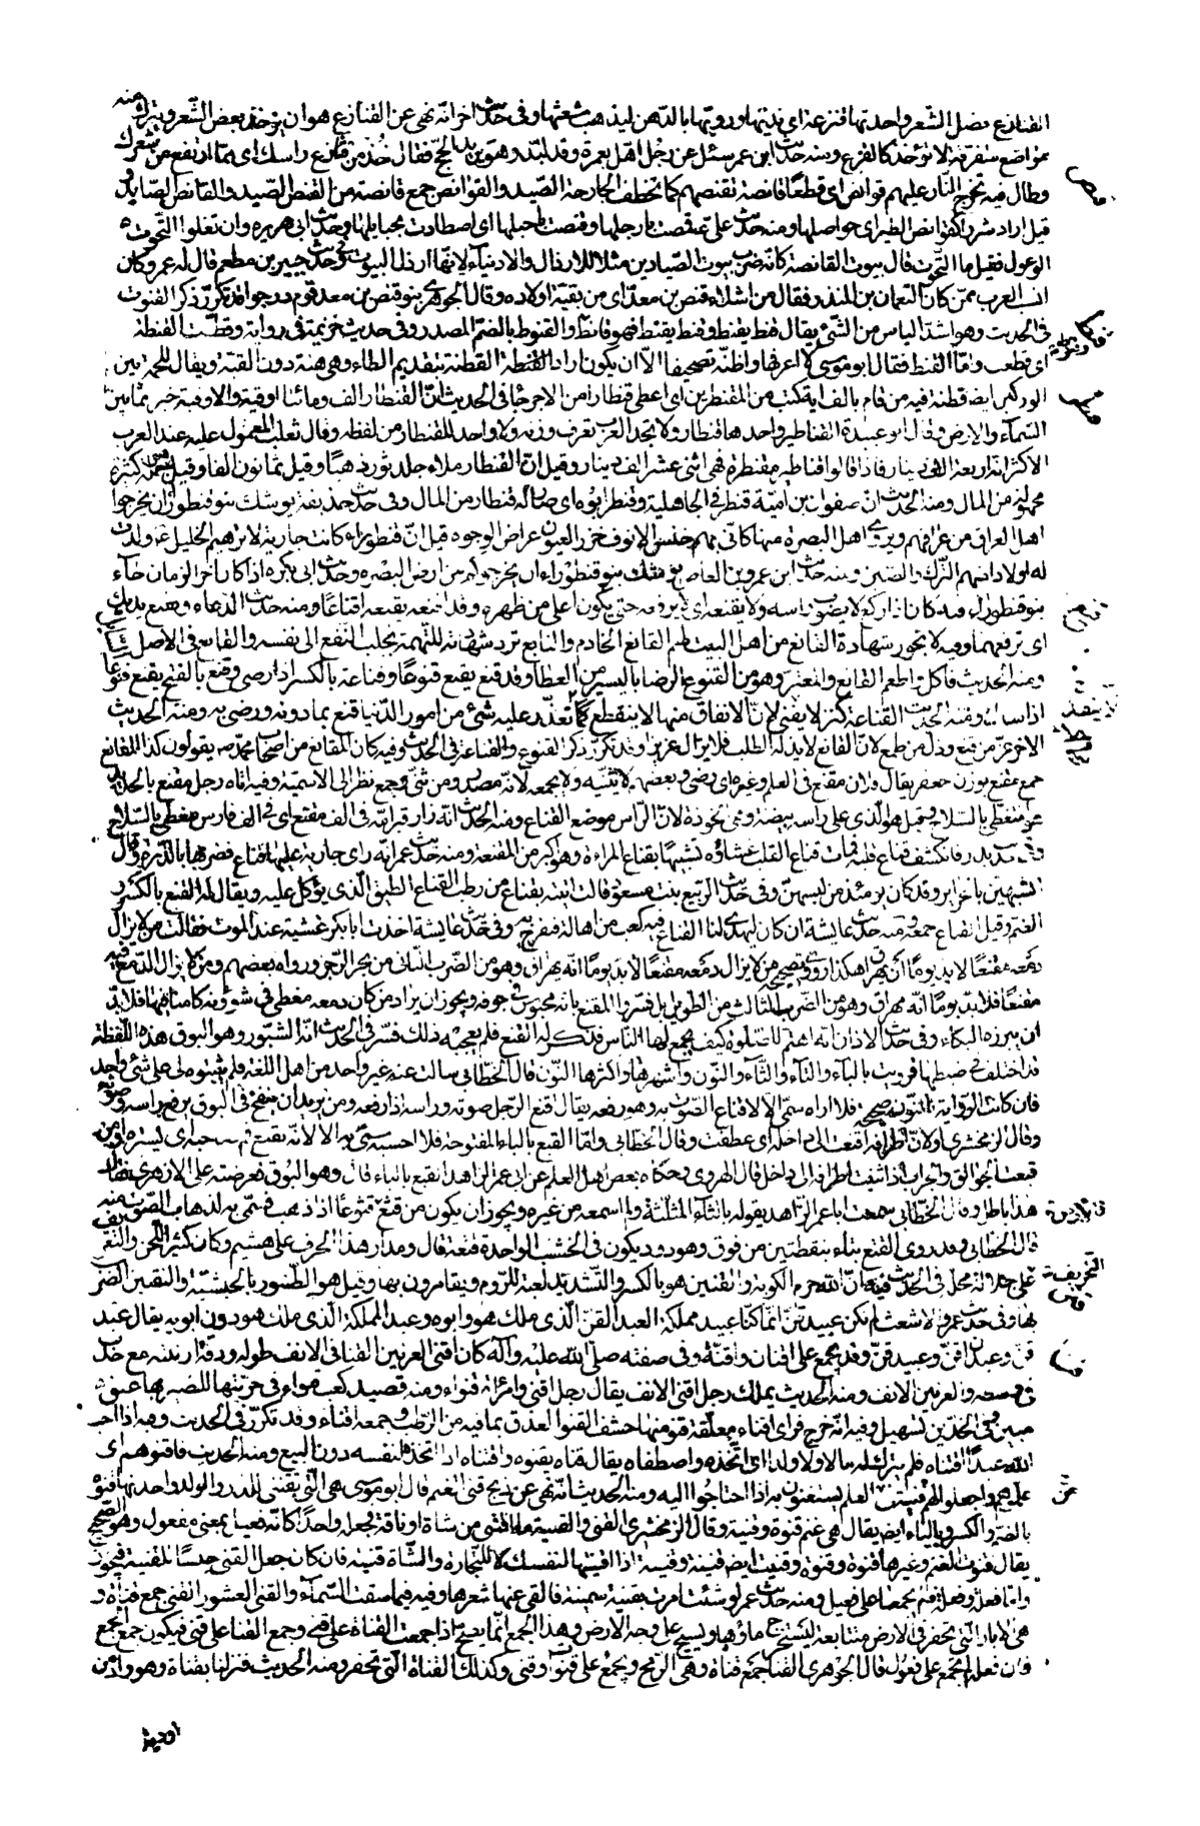 القنازع خصل الشعر واحدتها قنزعة اى نديها ورويها بالدهن ليذهب شعثها وفى حديث اخر انه نهى عن القنازع هو ان يؤخذ بعض الشعر ويترك منه
مواضع متفرقة لا تؤخذ كالقزع ومنه حديث ابن عمر سئل عن رجل اهل بعمرة وقد لبد وهو يريد الحج فقال خذ من قنازع راسك اى مما ارتفع من شعرك
وطال فيه تخرج النار عليهم قوانص اى قطعا قانصة تقنصهم كما تخطف الجارحة الصيد والقوانص جمع قانصة من القنص الصيد والقانص الصايد
قيل اراد شررا كقوانص الطير اى حواصلها ومنه حديث على قمصت بارجلها وقنصت باحبلها اى اصطادت بحبايلها وحديث ابى هريرة وان تعلوا التحوت
الوعول فقيل ما التحوت قال بيوت القانصة كانه ضرب بيوت الصيادين مثلا للارذال والادنياء لانها ارذل البيوت وفى حديث جبير بن مطعم قال له عمر وكان
انسب العرب ممن كان النعمان بن المنذر فقال من اشلاء قنص بن معد اى من بقية اولاده وقال الجوهرى بنو قنص بن معد قوم درجوا قد تكرر ذكر القنوت
فى الحديث وهو اشد الياس من الشئ يقال قنط يقنط وقنط يقنط فهو قانط والقنوط بالضم المصدر وفى حديث خزيمة فى رواية وقطت القنطة
اى قطعت واما القنط فقال ابو موسى لا اعرفها واظنه تصحيفا الا ان يكون اراد القنطة القطنة بتقديم الطاء وهى هنة دون القبة ويقال للحمة بين
الوركين ايضا قطنة فيه من قام بالف اية كتب من المقنطرين اى اعطى قنطارا من الاجر جاء فى الحديث ان القنطار الف ومائتا اوقية والاوقية خير مما بين
السماء والارض وقال ابو عبيدة القناطير واحدها قنطار ولا تجد العرب تعرف وزنه ولا واحد للقنطار من لفظه وقال ثعلب المعمول عليه عند العرب
الاكثر انه اربعة الف دينار فاذا قالوا قناطير مقنطرة فهى اثنى عشر الف دينار وقيل ان القنطار ملاء جلد ثور ذهبا وقيل ثمانون الفا وقيل كثيرة
مجهولة من المال ومنه الحديث ان صفوان بن امية قنطر فى الجاهلية وقنطر ابوه اى صار له قنطار من المال وفى حديث حذيفة يوشك بنو قنطورا ان يخرجوا
اهل العراق من عراقهم ويروى اهل البصرة منها كانى بهم خنس الانوف خزر العيون عراض الوجوه قيل ان قنطوراء كانت جارية لابراهيم الخليل ع ولدت
له اولادا منهم الترك والصين ومنه حديث ابن عمرو بن العاص يوشك بنو قنطوراء ان يخرجوكم من ارض البصرة وحديث ابى بكرة اذا كان اخر الزمان جاء
بنو قنطوراء فيه كان اذا ركع لا يصوب راسه ولا يقنعه اى لا يرفعه حتى يكون اعلى من ظهره وقد اقنعه يقنعه اقناعا ومنه حديث الدعاء وتقنع يديك
اى ترفعهما وفيه لا تجوز شهادة القانع من اهل البيت لهم القانع الخادم والتابع ترد شهادته للتهمة بجلب النفع الى نفسه والقانع فى الاصل السائل
ومنه الحديث فاكل واطعم القانع والمعتر وهو من القنوع الرضا باليسير من العطاء وقد قنع يقنع قنوعا وقناعة بالكسر اذا رضى وقنع بالفتح يقنع قنوعا
اذا سال ومنه الحديث القناعة كنز لا يفنى لان الانفاق منها لا ينقطع كلما تعذر عليه شئ من امور الدنيا قنع بما دونه ورضى به ومنه الحديث
الاخر عز من قنع وذل من طمع لان القانع لا يذله الطلب فلا يزال عزيزا وقد تكرر ذكر القنوع والقناعة فى الحديث وفيه كان المقانع من اصحاب محمد ص يقولون كذا المقانع
جمع مقنع بوزن جعفر يقال فلان مقنع فى العلم وغيره اى رضى وبعضهم لا يثنيه ولا يجمعه لانه مصدر ومن ثنى وجمع نظر الى الاسمية وفيه اتاه رجل مقنع بالحديد
هو متغطى بالسلاح وقيل هو الذى على راسه بيضة وهى الخوذة لان الراس موضع القناع ومنه الحديث انه زار قبر امه فى الف مقنع اى فى الف فارس مغطى بالسلاح
وفى حديث بدر فانكشف قناع قلبه فمات قناع القلب غشاؤه تشبيها بقناع المراءة وهو اكبر من المقنعة ومنه حديث عمر انه راى جارية عليها قناع فضربها بالدرة وقال
اتشبهين بالحراير وقد كان يومئذ من لبسهن وفى حديث الربيع بنت معوذ قالت اتيته بقناع من رطب القناع الطبق الذى يؤكل عليه ويقال له القنع بالكسر و
الضم وقيل القناع جمعه ومنه حديث عايشة ان كان ليهدى لنا القناع فيه كعب من اهالة فنفرح به وفى حديث عايشة اخذت ابا بكر غشية عند الموت فقالت من لا يزال
دمعه مقنعا لا بد يوما ان يهراق هكذا روى وتصحيحه من لا يزال دمعه مقنعا لا بد يوما انه يهراق وهو من الضرب الثانى من بحر الرجز ورواه بعضهم ومن لا يزال الدمع فيه
مقنعا فلا بد يوما انه مهراق وهو من الضرب الثالث من الطويل فسروا المقنع بانه محبوس فى جوفه ويجوز ان يراد من كان دمعه مغطى فى شؤونه كامنا فيها فلا بد
ان يبرزه البكاء وفى حديث الاذان انه اهتم للصلوة كيف يجمع لها الناس فذكر له القنع فلم يعجبه ذلك فسر فى الحديث انه الشبور وهو البوق هذه اللفظة
قد اختلف فى ضبطها فرويت بالباء والتاء والثاء والنون واشهرها واكثرها النون قال الخطابى سالت عنه غير واحد من اهل اللغة فلم يثبتوه لى على شئ واحد
فان كانت الرواية بالنون صحيحة فلا اراه سمى الا لاقناع الصوت به وهو رفعه يقال اقنع الرجل صوته وراسه اذا رفعه ومن يريد ان ينفخ فى البوق يرفع راسه وصوته
وقال الزمخشرى او لان اطرافه اقنعت الى داخله اى عطفت وقال الخطابى واما القبع بالباء المفتوحة فلا احسبه سمى به الا لانه يقبع فم صاحبه اى يستره او من
قبعت الجوالق والجراب اذا ثنيت اطرافه الى داخل قال الهروى وحكاه بعض اهل العلم عن ابى عمر الزاهد القبع بالباء قال وهو البوق فعرضته على الازهرى فقال
هذا باطل وقال الخطابى سمعت ابا عمر الزاهد يقوله بالثاء المثلثة ولم اسمعه من غيره ويجوز ان يكون من قثع قثوعا اذا ذهب فسمى به لذهاب الصوت منه
قال الخطابى وقد روى القتع بتاء بنقطتين من فوق وهو دود يكون فى الخشب الواحدة قتعة قال ومدار هذا الحرف على هشيم وكان كثير اللحن والتحريف
على جلالة محله فى الحديث فيه ان الله حرم الكوبة والقنين هو بالكسر والتشديد لعبة للروم ويقامرون بها وقيل هو الطنبور بالحبشية والتقنين الضرب
بها وفى حديث عمر والاشعث لم نكن عبيد قن انما كنا عبيد مملكة العبد القن الذى ملك هو وابوه وعبد المملكة الذى ملك هو دون ابويه يقال عبد
قن وعبدان قن وعبيد قن وقد يجمع على اقنان واقنة وفى صفته صلى الله عليه وآله كان اقنى العرنين القنا فى الانف طوله ودقة ارنبته مع حدب
فى وسطه والعرنين الانف ومنه الحديث يملك رجل اقنى الانف يقال رجل اقنى وامراة قنواء ومنه قصيد كعب قنواء فى حرتيها للبصير بها عتق
مبين وفى الخدين تسهيل وفيه انه خرج فراى اقناء معلقة قنو منها حشف القنو العذق بما فيه من الرطب وجمعه اقناء وقد تكرر فى الحديث وفيه اذا احب
الله عبدا اقتناه فلم يترك له مالا ولا ولدا اى اتخذه واصطفاه يقال قناه يقنوه واقتناه اذا اتخذه لنفسه دون البيع ومنه الحديث فاقنوهم اى
علموهم واجعلوا لهم قنية من العلم يستغنون به اذا احتاجوا اليه ومنه الحديث انه نهى عن ذبح قنى الغنم قال ابو موسى هى التى تقتنى للدر والولد واحدتها قنوة
بالضم والكسر وبالياء ايضا يقال هى غنم قنوة وقنية وقال الزمخشرى القنى والقنية ما اقتنى من شاة او ناقة فجعله واحدا كانه فعيل بمعنى مفعول وهو الصحيح
يقال قنوت الغنم وغيرها قنوة وقنوة وقنيت ايضا قنية وقنية اذا اقتنيتها لنفسك لا للتجارة والشاة قنية فان كان جعل القنى جنسا للقنية فيجوز
واما فعلة وفعلة فلم يجمعا على فعيل ومنه حديث عمر لو شئت امرت بقنية سمينة فالقى عنها شعرها وفيه فيما سقت السماء والقنى العشور القنى جمع قناة و
هى الابار التى تحفر فى الارض متتابعة ليستخرج ماؤها ويسيح على وجه الارض وهذا الجمع انما يصح اذا جمعت القناة على قنى وجمع القنا على قنى فيكون جمع الجمع
فان فعلة لم تجمع على فعول قال الجوهرى القنا جمع قناة وهى الرمح ويجمع على قنوات وقنى وكذلك القناة التى تحفر ومنه الحديث فنزلنا بقناة وهو واد من
اودية